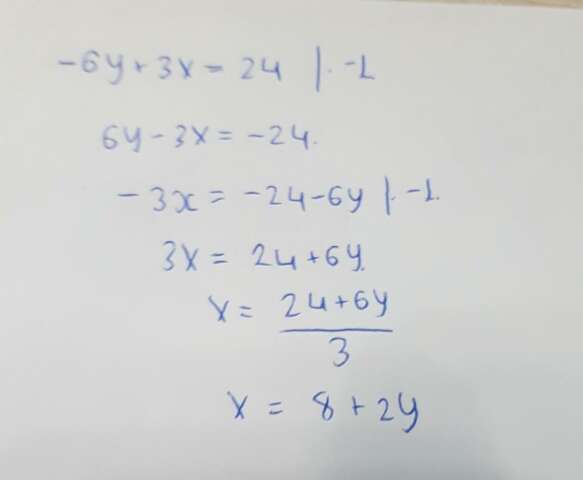 -6y+3x=24 |·-1
6y-3x=-24.
-3x=-24-6y |·-1.
3x=24+6y.
x=24+6y
3
x=8+2y